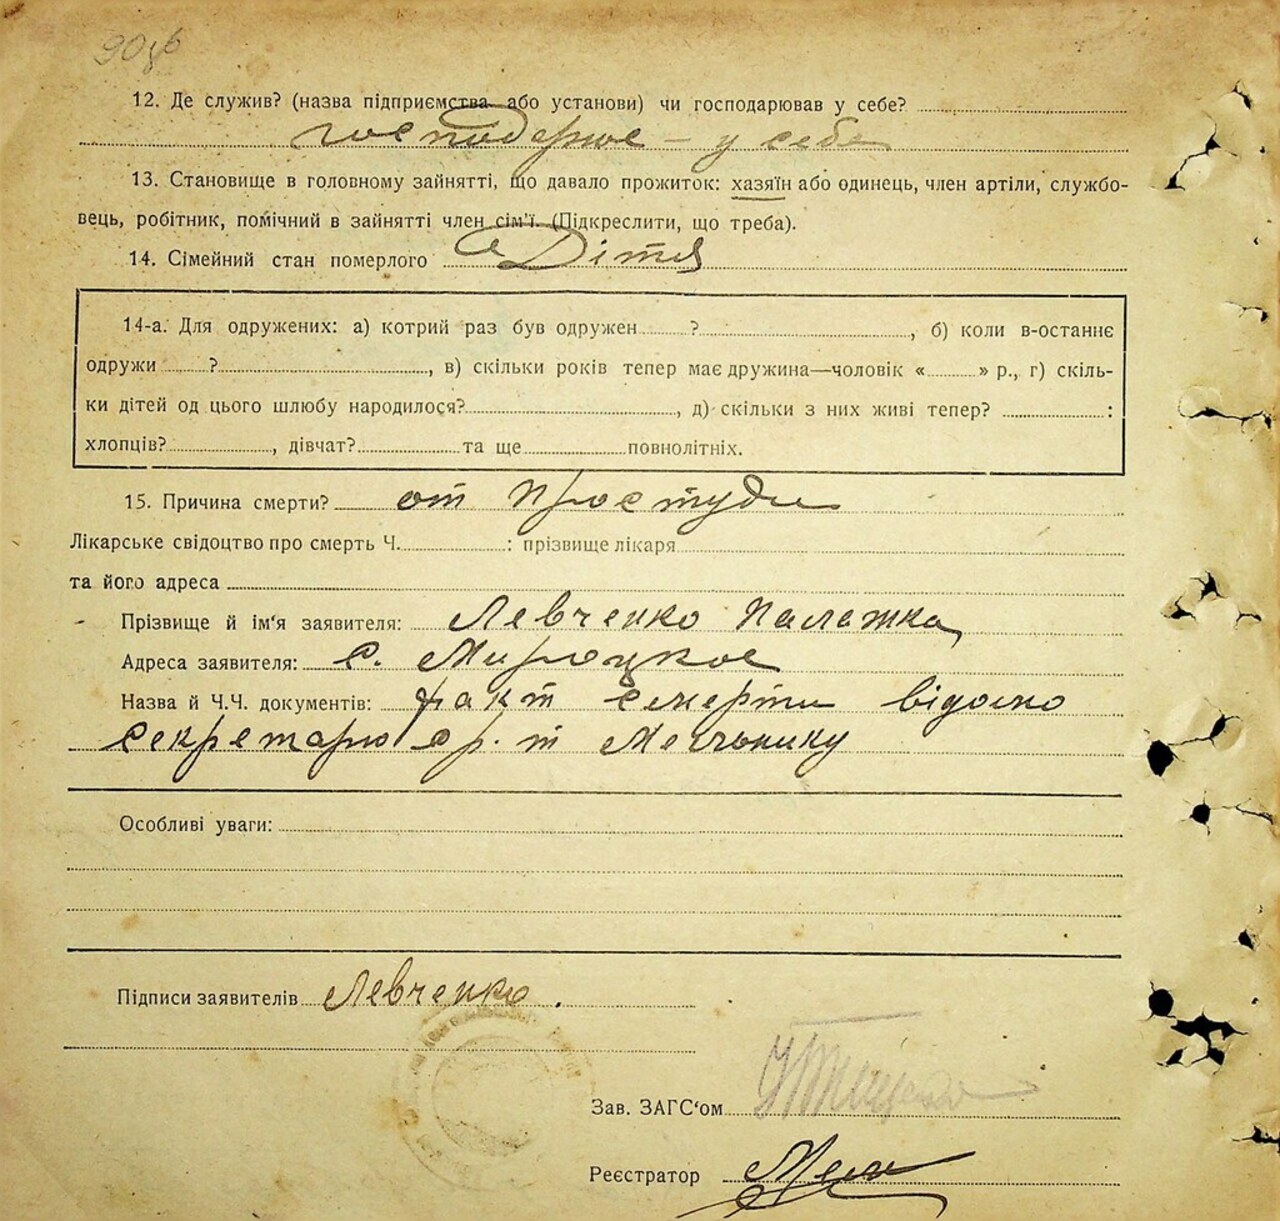 12. Де служив? (назва підприємства або установи) чи господарював у себе?
у себе
13. Становище в головному зайнятті, що давало прожиток: хазяїн або одинець, член артіли, службо-
вець, робітник, помічний в зайнятті член сім'ї. (Підкреслити, що треба).
14. Сімейний стан померлого Дітя
14-а. Для одружених: а) котрий раз був одружен ? , б) коли в-останнє
одружи ? , в) скільки років тепер має дружина—чоловік « » р., г) скіль-
ки дітей од цього шлюбу народилося? , д) скільки з них живі тепер? :
хлопців? , дівчат? та ще повнолітніх.
15. Причина смерти? от простуди
Лікарське свідоцтво про смерть Ч. : прізвище лікаря
та його адреса
Прізвище й ім'я заявителя: Левченко Палажка
Адреса заявителя: с. Мироцкое
Назва й Ч.Ч. документів: факт смерти відомо
секретарю
Особливі уваги:
Підписи заявителів Левченко.
Зав. ЗАГС'ом
Реєстратор